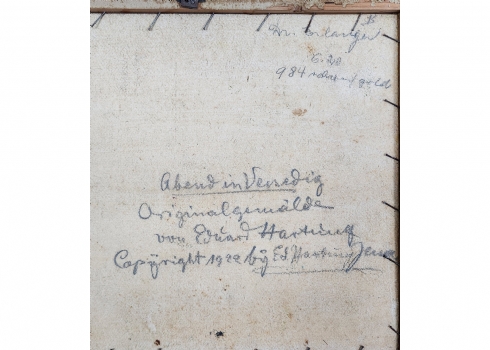 Dr. Erlanger
984
Abend in Venedig
Originalgemälde
von Eduard Hartung
Copyright 1922 by Ed. Hartung Jena